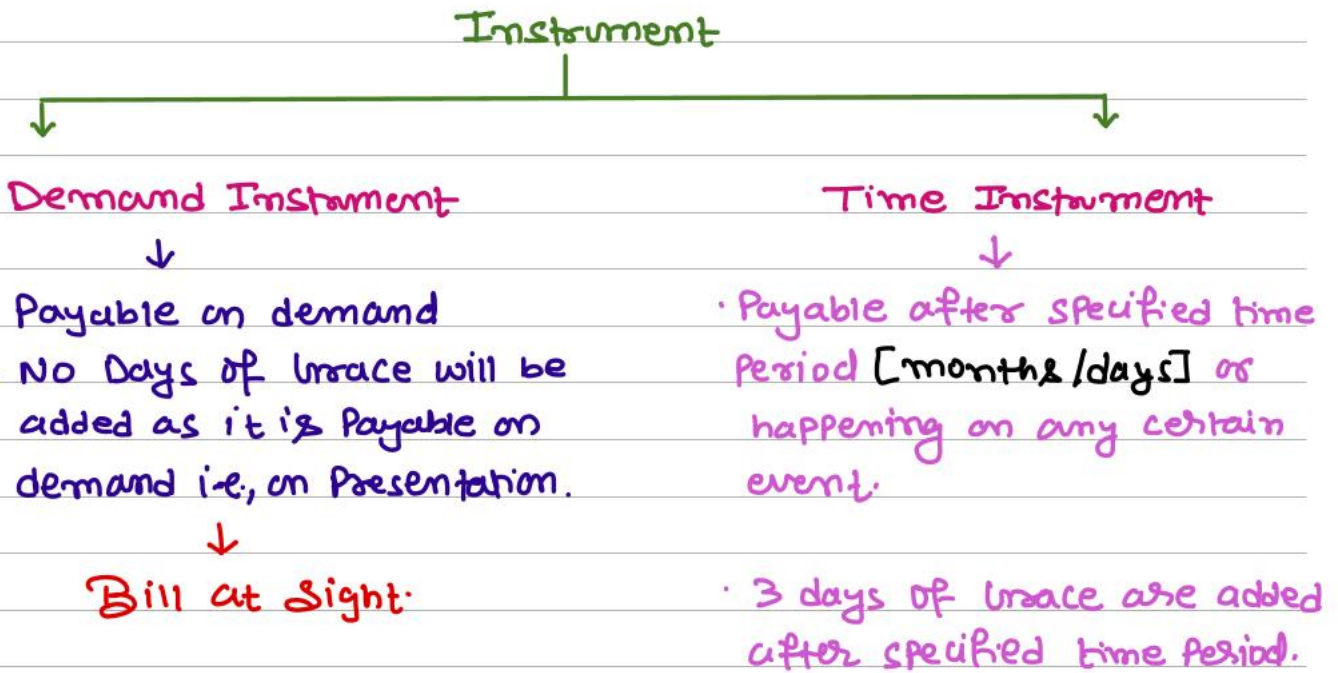 Instrument
Demand Instrument
Payable on demand
No Days of Grace will be
added as it is Payable on
demand i.e., on Presentation.
Bill at Sight.
Time Instrument
· Payable after specified time
Period [months/days] or
happening on any certain
event.
· 3 days of Grace are added
after specified time Period.